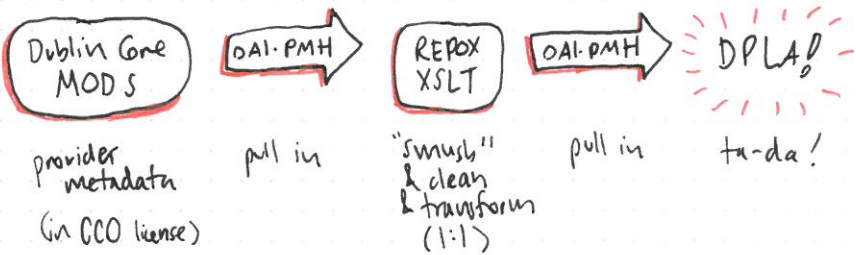 Dublin Core
MODS
OAI-PMH
REPOX
XSLT
OAI-PMH
DPLA!
provider
metadata
(in CC0 license)
pull in
"smush"
& clean
& transform
(1:1)
pull in
ta-da!